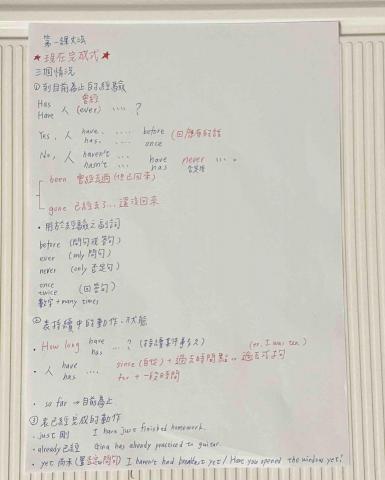 第一課文法
★現在完成式★
三個情況
①到目前為止的經驗
Has 曾經
Have 人 (ever) .... ?
Yes, 人 have. .... before (回應有的話
has. .... once
No, 人 haven't ... have never ... .
hasn't ... has
been 曾經去過(但已回來)
gone 已經去了...還沒回來
• 用於經驗之副詞
before (問句或答句)
ever (only 問句)
never (only 否定句)
once
twice (回答句)
數字 + many times
②表持續中的動作、狀態
• How long have ... ? (持續某件事多久) (ex. I was ten)
has
• 人 have .... since (自從) + 過去時間點 or 過去式子句
has for + 一段時間
• so far → 目前為止
③表已經完成的動作
• just 剛 I have just finished homework.
• already 已經 Gina has already practiced to guitar.
• yet 尚未 (否定、問句) I haven't had breakfast yet / Have you opened the window yet?